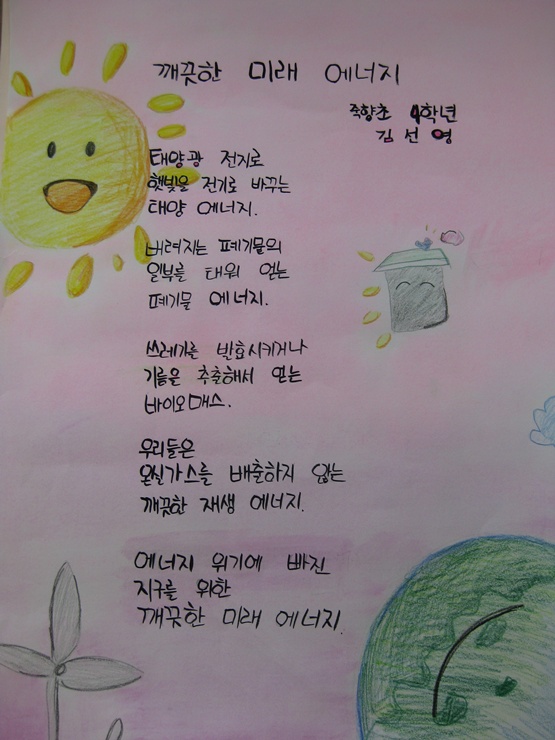 깨끗한 미래 에너지
중향초 4학년
김선영
태양광 전지로
햇빛을 전기로 바꾸는
태양 에너지.
버려지는 폐기물의
일부를 태워 얻는
폐기물 에너지.
쓰레기를 발효시키거나
기름은 추출해서 얻는
바이오매스.
우리들은
온실가스를 배출하지 않는
깨끗한 재생 에너지.
에너지 위기에 빠진
지구를 위한
깨끗한 미래 에너지.